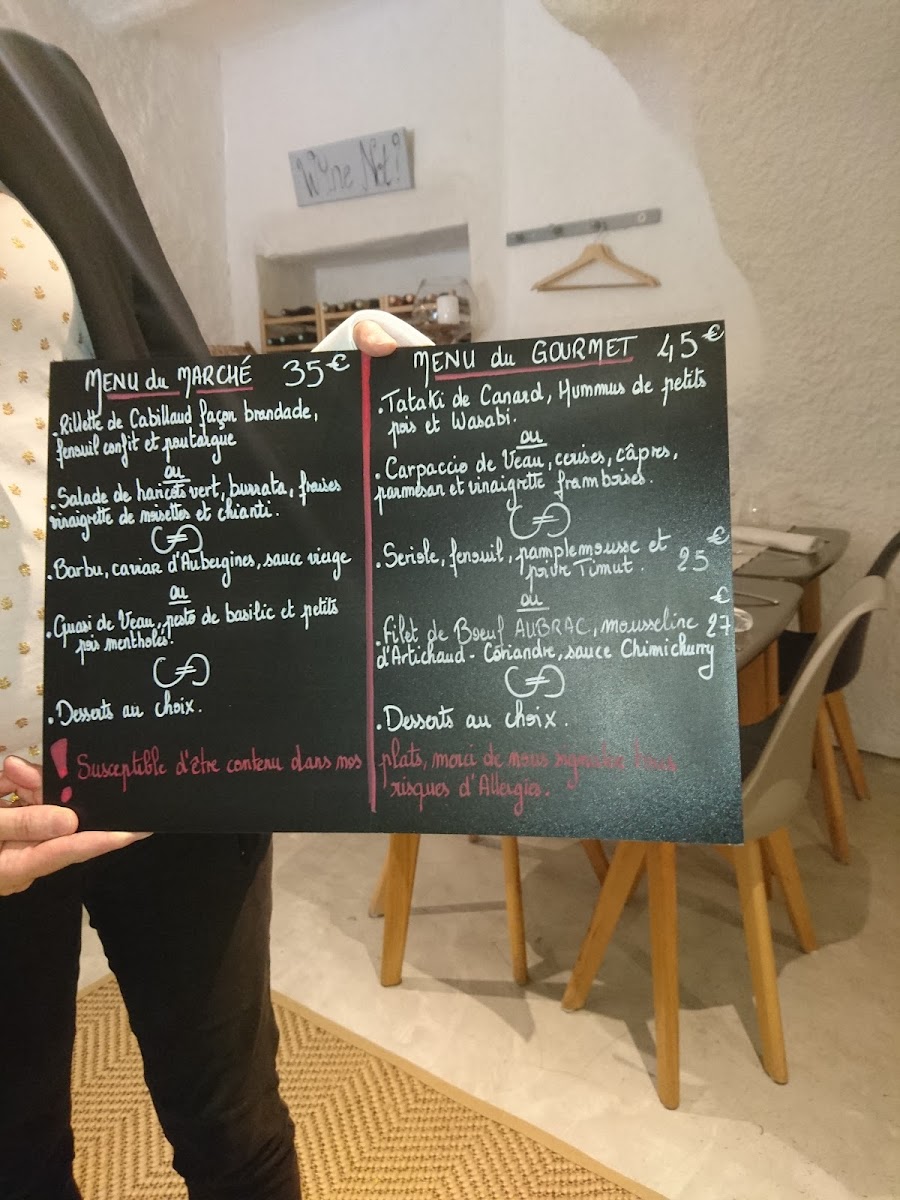 Wine Not?
MENU du MARCHÉ 35€
. Rillette de Cabillaud façon brandade,
fenouil confit et poutargue
ou
. Salade de haricots vert, burrata, fraises
vinaigrette de noisettes et chianti.
. Barbu, caviar d'Aubergines, sauce vierge
ou
. Quasi de Veau, pesto de basilic et petits
pois mentholés.
. Desserts au choix.
MENU du GOURMET 45€
. Tataki de Canard, Hummus de petits
pois et Wasabi.
ou
. Carpaccio de Veau, cerises, câpres,
parmesan et vinaigrette framboises.
. Seriole, fenouil, pamplemousse et
poivre Timut. 25€
ou
. Filet de Boeuf AUBRAC, mousseline 27€
d'Artichaud - Coriandre, sauce Chimichurry
. Desserts au choix.
! Susceptible d'être contenu dans nos plats, merci de nous signaler tous
risques d'Allergies.